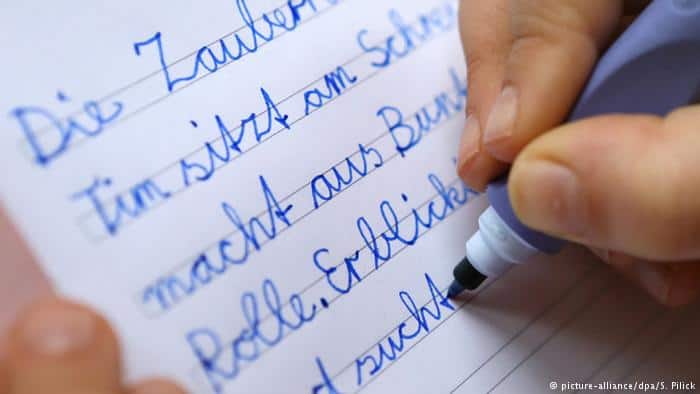 Die Zauber
Tim sitzt am Schre
macht aus Bunt
Rolle. Erblickt
d sucht
© picture-alliance/dpa/S. Pilick